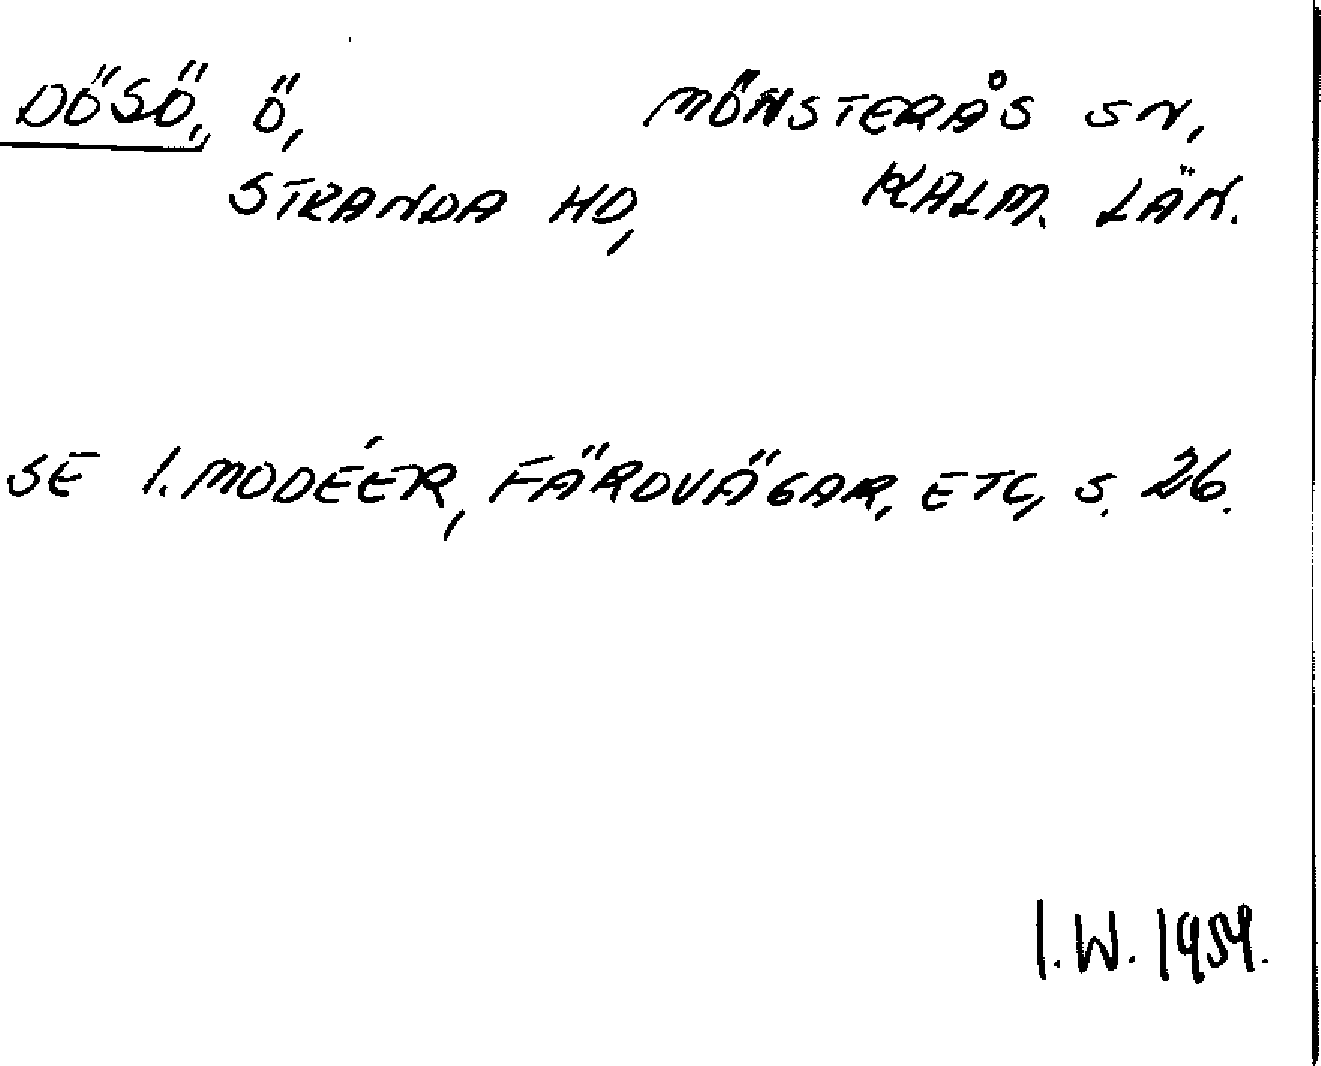 DÖSÖ, Ö, MÖNSTERÅS SN,
STRANDA HD, KALM. LÄN.
SE I. MODÉER, FÄRDVÄGAR, ETC, S. 26.
I. W. 1959.